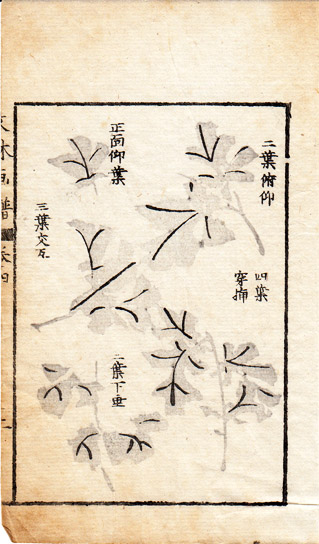 二葉俯仰
四葉
穿插
正面仰葉
二葉下垂
三葉交互